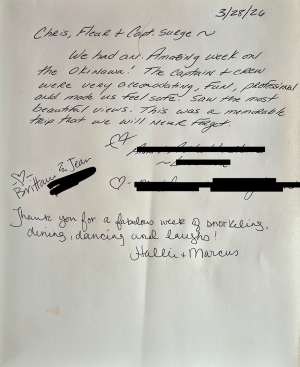 3/28/26
Chris, Fleur & Capt. Surge ~
We had an Amazing week on
the Okinawa! The Captain & crew
were very accomodating, fun, professional
and made us feel safe. Saw the most
beautiful views. This was a memorable
trip that we will Never Forget.
Brittany & Jean
Thank you for a fabulous week of snorkeling,
dining, dancing and laughs!
Hallie & Marcus